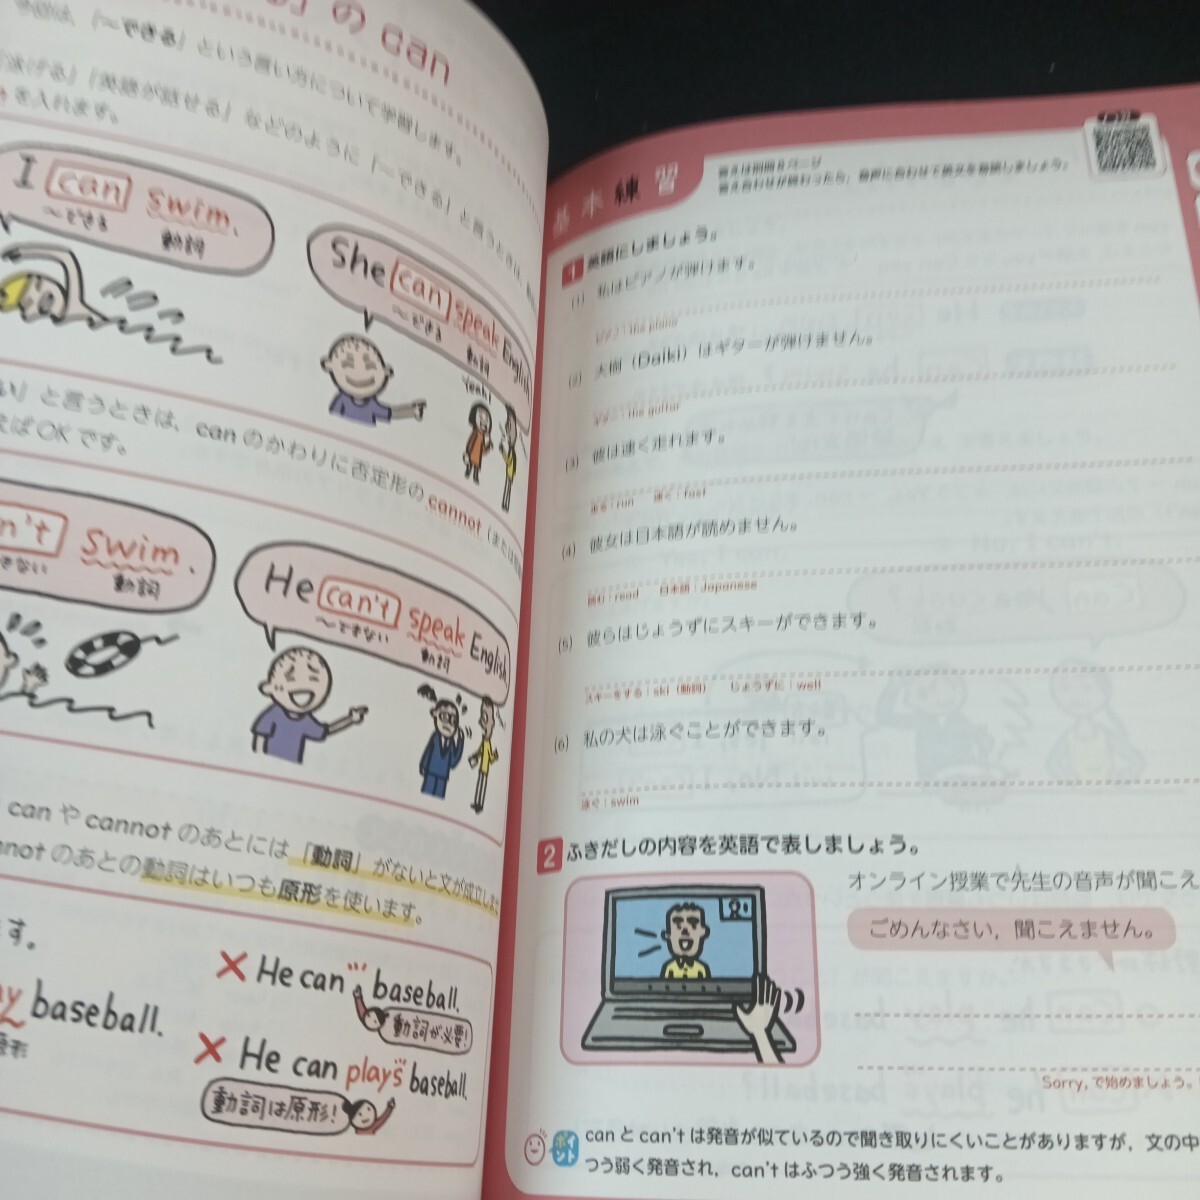 のcan
「〜できる」という言い方について学習します。
「英語が話せる」などのように「〜できる」と言うときは、
を入れます。
I can swim.
〜できる 動詞
She can speak English
〜できる 動詞
Yeah!
い」と言うときは、canのかわりに否定形のcannot
ばOKです。
n't swim.
動詞
He can't speak English.
〜できない 動詞
canやcannotのあとには「動詞」がないと文が成立しま
notのあとの動詞はいつも原形を使います。
ます。
baseball.
原形
× He can baseball.
動詞が必要!
× He can plays baseball.
動詞は原形!
基本練習
答えは別冊8ページ
答え合わせが終わったら、音声に合わせて英文を音読しましょう。
1 英語にしましょう。
(1) 私はピアノが弾けます。
ピアノ：the piano
(2) 大樹（Daiki）はギターが弾けません。
ギター：the guitar
(3) 彼は速く走れます。
走る：run 速く：fast
(4) 彼女は日本語が読めません。
読む：read 日本語：Japanese
(5) 彼らはじょうずにスキーができます。
スキーをする：ski（動詞） じょうずに：well
(6) 私の犬は泳ぐことができます。
泳ぐ：swim
2 ふきだしの内容を英語で表しましょう。
オンライン授業で先生の音声が聞こえ
ごめんなさい，聞こえません。
Sorry, で始めましょう。
ポイント canとcan'tは発音が似ているので聞き取りにくいことがありますが，文の中
つう弱く発音され，can'tはふつう強く発音されます。